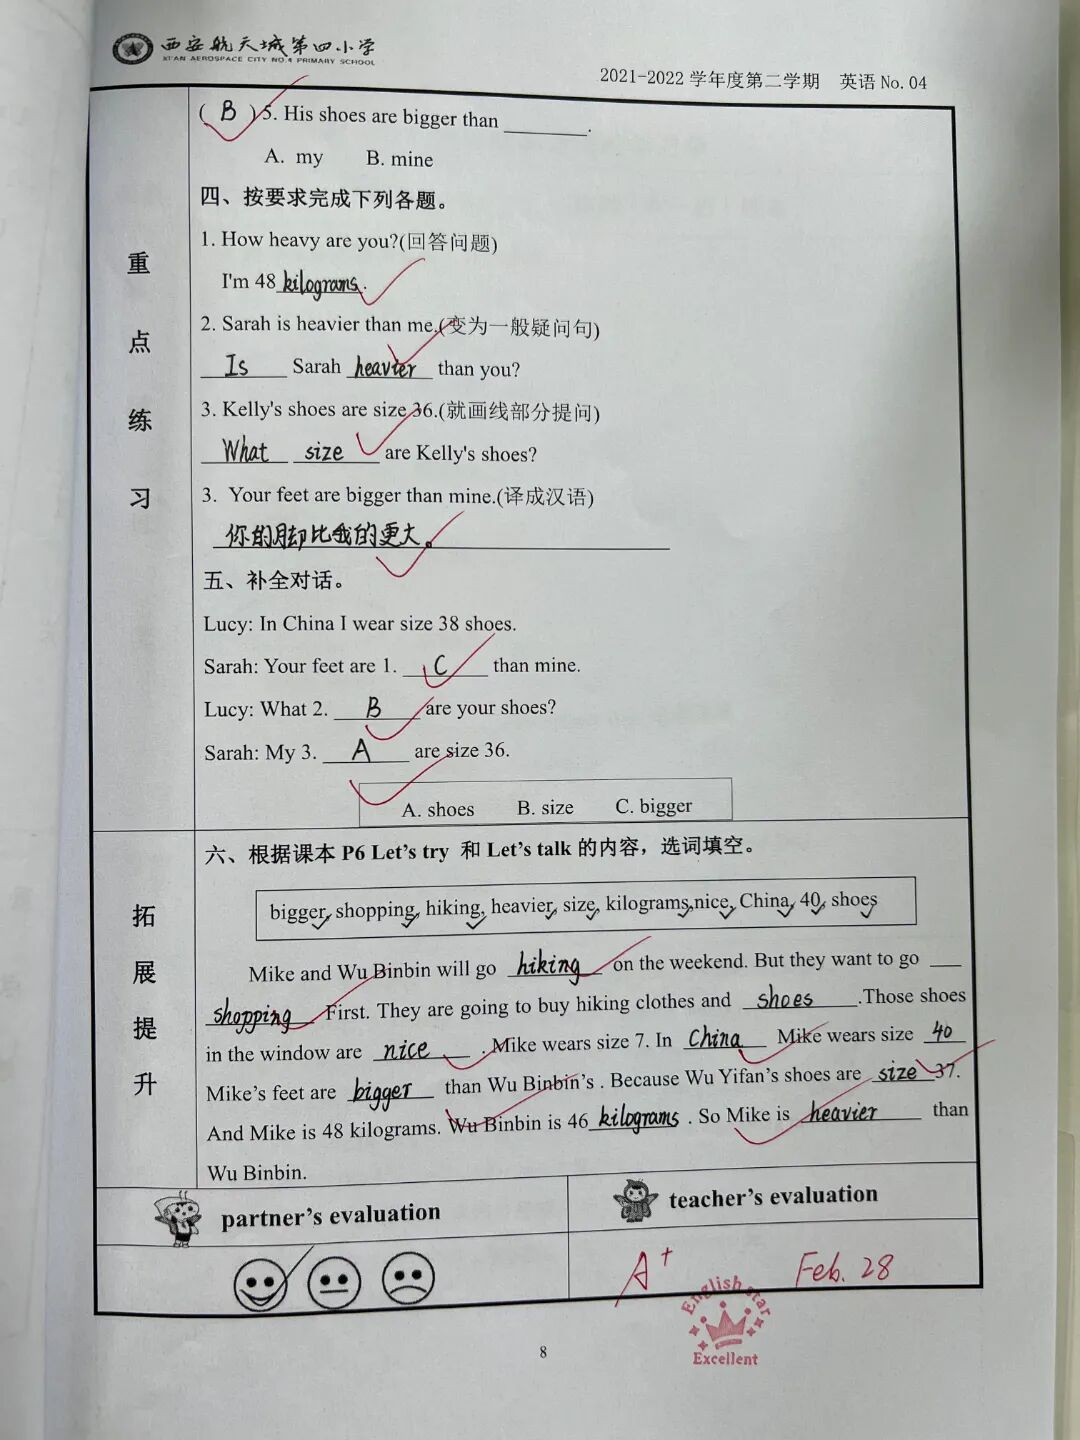 西安航天城第四小学
XI'AN AEROSPACE CITY NO.4 PRIMARY SCHOOL
2021-2022 学年度第二学期 英语 No. 04
( B ) 5. His shoes are bigger than ________.
A. my B. mine
重点练习
四、按要求完成下列各题。
1. How heavy are you?(回答问题)
I'm 48 kilograms.
2. Sarah is heavier than me.(变为一般疑问句)
Is Sarah heavier than you?
3. Kelly's shoes are size 36.(就画线部分提问)
What size are Kelly's shoes?
3. Your feet are bigger than mine.(译成汉语)
你的脚比我的更大。
五、补全对话。
Lucy: In China I wear size 38 shoes.
Sarah: Your feet are 1. C than mine.
Lucy: What 2. B are your shoes?
Sarah: My 3. A are size 36.
A. shoes B. size C. bigger
拓展提升
六、根据课本 P6 Let's try 和 Let's talk 的内容，选词填空。
bigger, shopping, hiking, heavier, size, kilograms,nice, China, 40, shoes
Mike and Wu Binbin will go hiking on the weekend. But they want to go ___
shopping First. They are going to buy hiking clothes and shoes .Those shoes
in the window are nice . Mike wears size 7. In China Mike wears size 40
Mike's feet are bigger than Wu Binbin's . Because Wu Yifan's shoes are size 37.
And Mike is 48 kilograms. Wu Binbin is 46 kilograms . So Mike is heavier than
Wu Binbin.
partner's evaluation
teacher's evaluation
A+ Feb. 28
English star
Excellent
8